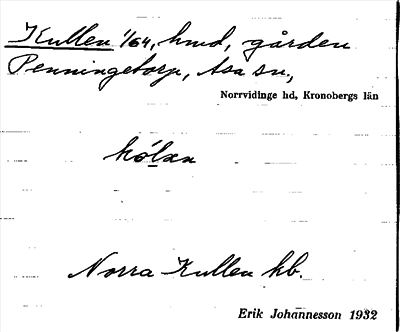 Kullen 1/64, hmd, gården
Penningetorp, Asa sn.,
Norrvidinge hd, Kronobergs län
kólan
Norra Kullen kb.
Erik Johannesson 1932